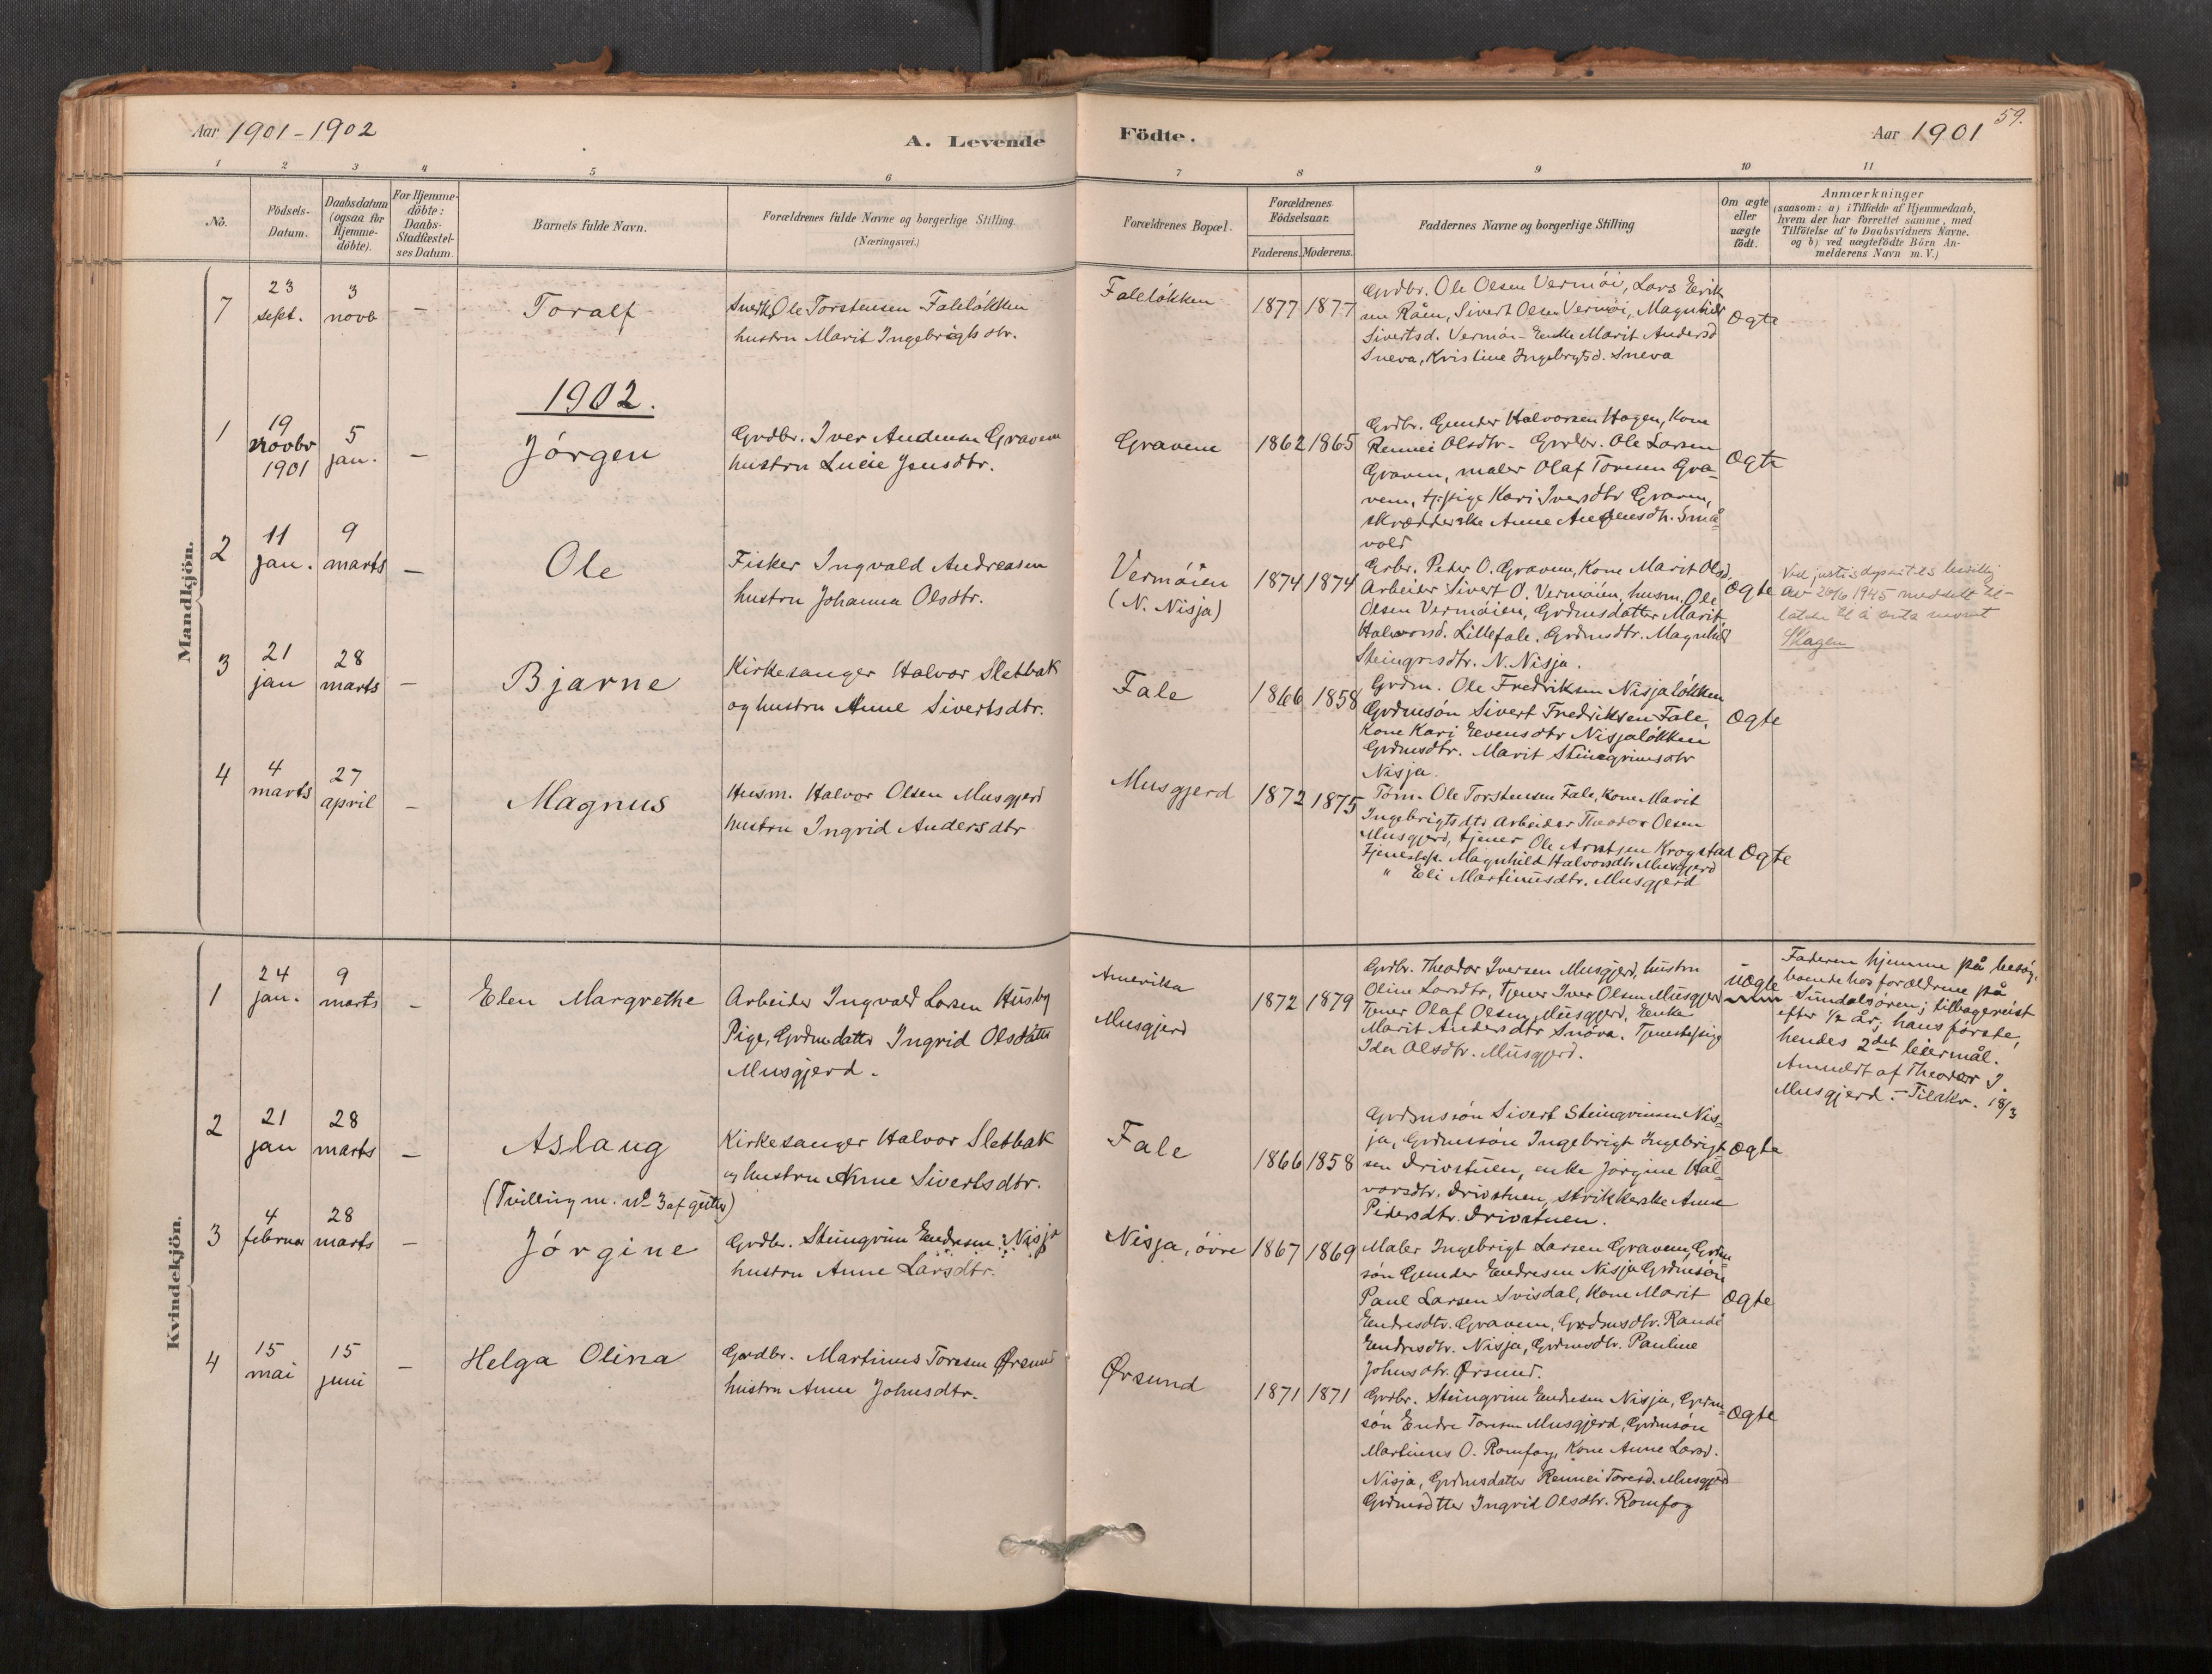 Aar 1901-1902
A. Levende
Födte.
Aar 1901
59.
1 2 3 4 5 6 7 8 9 10 11
No.
Födsels-Datum.
Daabsdatum (ogsaa for Hjemme-döbte).
For Hjemme-döbte: Daabs-Stadfæstel-ses Datum.
Barnets fulde Navn.
Forældrenes fulde Navne og borgerlige Stilling.
(Næringsvei.)
Forældrenes Bopæl.
Forældrenes Födselsaar.
Faderens. Moderens.
Faddernes Navne og borgerlige Stilling
Om ægte eller uægte födt.
Anmærkninger
(saasom: a) i Tilfælde af Hjemmedaab,
hvem der har forrettet samme, med
Tilföielse af to Daabsvidners Navne.
og b) ved uægtefödte Börn An-
melderens Navn m. V.)
Mandkjön.
7
23 sept.
3 novb
–
Toralf
Snedk. Ole Torstensen Faleløkken
hustru Marit Ingebrigtsdtr.
Faleløkken
1877 1877
Grdbr. Ole Olsen Vermøi, Lars Erik
sen Råen, Sivert Olsen Vermøi, Magnhild
Sivertsd. Vermøi - Enke Marit Andersd
Sneva, Kristine Ingebrigtsd. Sneva
Ægte
1902.
1
19 novbr 1901
5 jan.
–
Jørgen
Grdbr. Iver Andersen Gravem
hustru Lucie Jensdtr.
Gravem
1862 1865
Grdbr. Gunder Halvorsen Hagen, Kone
Rennei Olsdtr. - Grdbr. Ole Larsen
Gravem, maler Olaf Toresen Gra-
vem, tj. pige Kari Iversdtr Gravem,
skrædderske Anne Andersdtr. Små-
vold
Ægte
2
11 jan.
9 marts
–
Ole
Fisker Ingvald Andreasen
hustru Johanna Olsdtr.
Vermøien
(N. Nisja)
1874 1874
Grbr. Peder O. Gravem, Kone Marit Olsd.
Arbeider Sivert O. Vermøien, husm. Ole
Olsen Vermøien, Grdmsdatter Marit
Halvorsd. Lillefale. Grdmsdtr. Magnhild
Steingrsdtr. N. Nisja.
Ægte
Ved justisdepart.ts bevillg
av 26/6 1945 meddelt til-
latelse til å anta navnet
Skagen
3
21 jan
28 marts
–
Bjarne
Kirkesanger Halvor Sletbak
og hustru Anne Sivertsdtr.
Fale
1866 1858
Grdm. Ole Fredriksen Nisjaløkken
Grdmsøn Sivert Fredriksen Fale,
Kone Kari Evensdtr Nisjaløkken
Grdmsdtr. Marit Steingrimsdtr
Nisja.
Ægte
4
4 marts
27 april
–
Magnus
Husm. Halvor Olsen Musgjerd
hustru Ingrid Andersdtr
Musgjerd
1872 1875
Tøm. Ole Torstensen Fale, Kone Marit
Ingebrigtsdtr Arbeider Theodor Olsen
Musgjerd, tjener Ole Arntsen Krogstad
Tjenestep. Magnhild Halvorsdtr Musgjerd
" Eli Martinusdtr. Musgjerd
Ægte
Kvindekjön.
1
24 jan.
9 marts
–
Elen Margrethe
Arbeider Ingvald Larsen Husby
Pige, Grdmdatter Ingrid Olsdatter
Musgjerd.
Amerika
Musgjerd
1872 1879
Grdbr. Theodor Iversen Musgjerd, hustru
Oline Larsdtr, Tjener Iver Olsen Musgjerd
Tjener Olaf Olsen Musgjerd, Enke
Marit Andersdtr Snöva. Tjenestepige
Ida Olsdtr. Musgjerd.
uægte
Faderen hjemme på besøg,
boende hos forældrene på
Sundalsøren; tilbagereist
efter 1/2 år; hans første,
hendes 2det leiermål.
Anmeldt af Theodor I.
Musgjerd. - Tilakr. 18/3
2
21 jan
28 marts
–
Aslaug
(Tvilling m. No 3 af gutter)
Kirkesanger Halvor Sletbak
og hustru Anne Sivertsdtr.
Fale
1866 1858
Grdmssøn Sivert Steingrimsen Nis-
ja, Grdmssøn Ingebrigt Ingebrigt
sen Drivstuen, enke Jørgine Hal-
vorsdtr. Drivstuen, strikkerske Anne
Pedersdtr. Drivstuen.
Ægte
3
4 februar
28 marts
–
Jørgine
Grdbr. Steingrim Endresen Nisja
hustru Anne Larsdtr.
Nisja, øvre
1867 1869
Maler Ingebrigt Larsen Gravem, Grdm-
søn Gunder Endresen Nisja Grdmsøn
Paul Larsen Svisdal, Kone Marit
Endresdtr. Gravem, Grdmsdtr. Randi
Endresdtr. Nisja, Grdmsdtr. Pauline
Johnsdtr. Ørsund.
Ægte
4
15 mai
15 juni
–
Helga Olina
Grdbr. Martinus Toresen Ørsund
hustru Anne Johnsdtr.
Ørsund
1871 1871
Grdbr. Steingrim Endresen Nisja, Grdm-
søn Endre Toresen Musgjerd, Grdmsøn
Martinus O. Romfog, Kone Anne Larsd.
Nisja, Grdmsdatter Rennei Toresd. Musgjerd
Grdmsdtter Ingrid Olsdtr. Romfog
Ægte